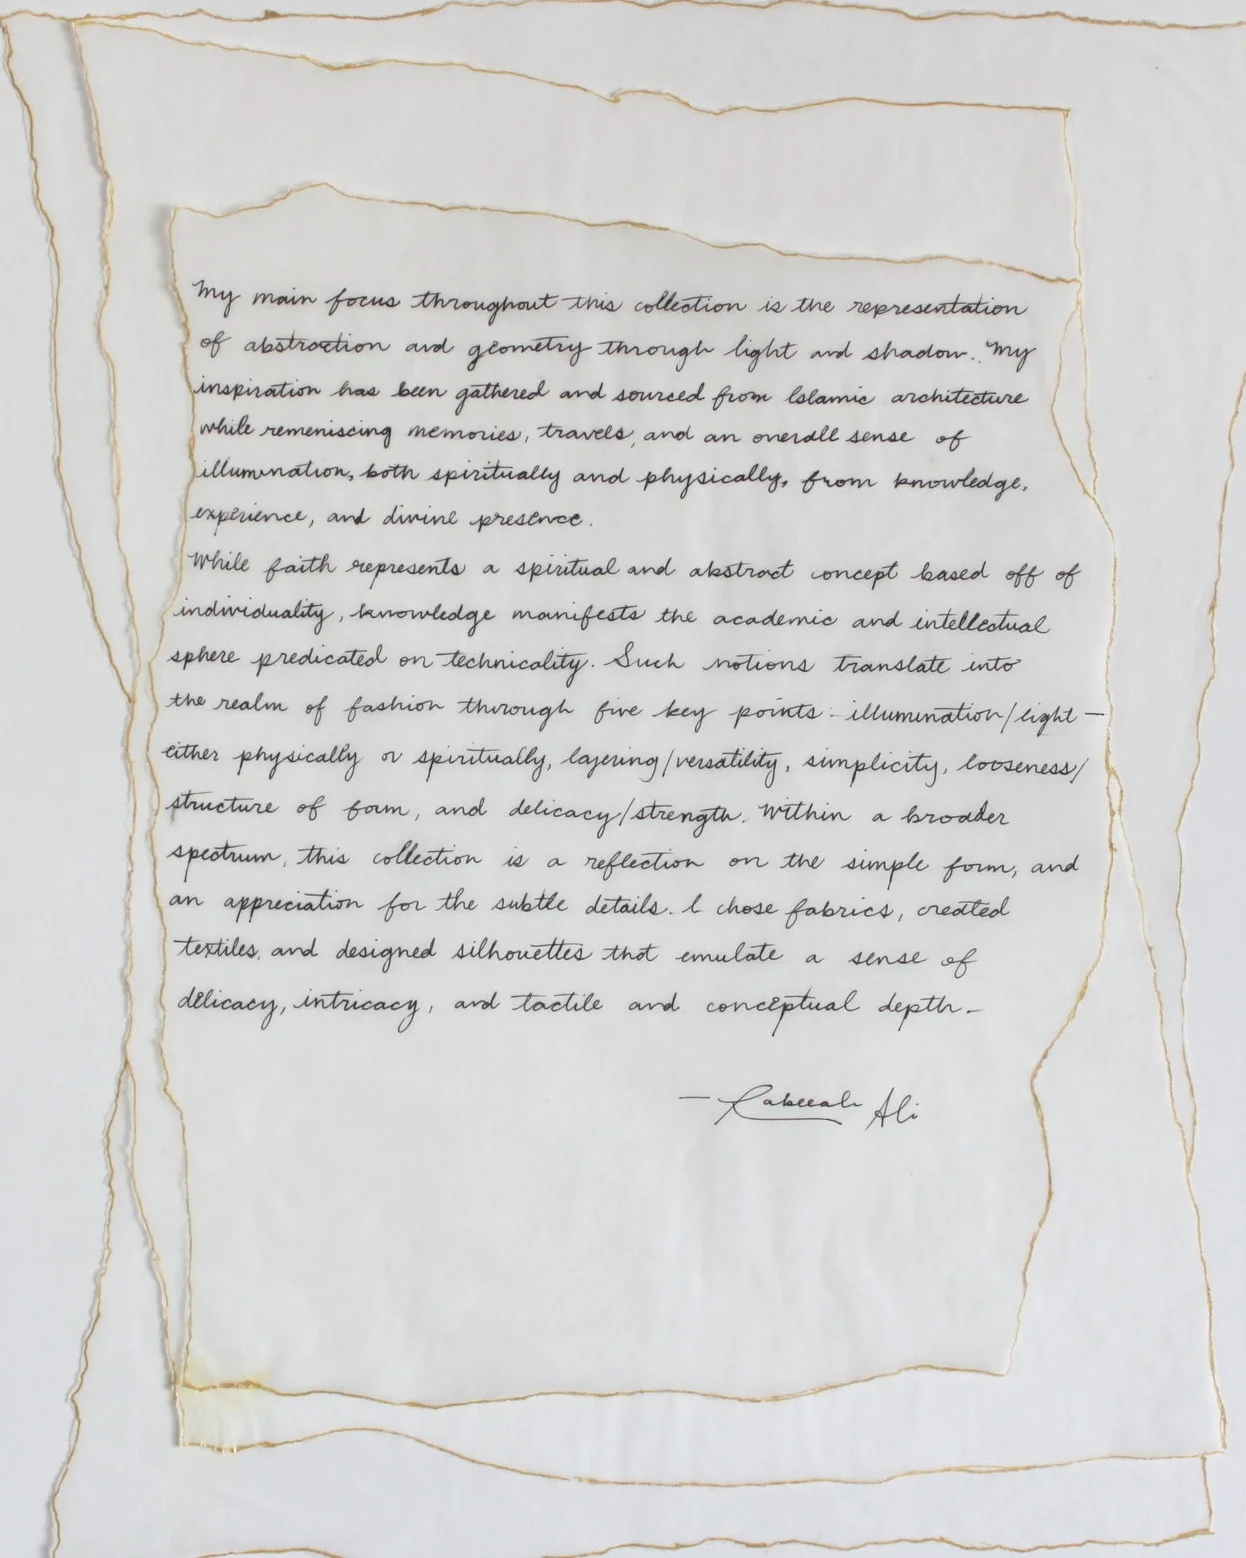 My main focus throughout this collection is the representation
of abstraction and geometry through light and shadow. My
inspiration has been gathered and sourced from Islamic architecture
while remeniscing memories, travels, and an overall sense of
illumination, both spiritually and physically, from knowledge,
experience, and divine presence.
While faith represents a spiritual and abstract concept based off of
individuality, knowledge manifests the academic and intellectual
sphere predicated on technicality. Such notions translate into
the realm of fashion through five key points - illumination/light -
either physically or spiritually, layering/versatility, simplicity, looseness/
structure of form, and delicacy/strength. Within a broader
spectrum, this collection is a reflection on the simple form, and
an appreciation for the subtle details. I chose fabrics, created
textiles, and designed silhouettes that emulate a sense of
delicacy, intricacy, and tactile and conceptual depth.
— Rabeeah Ali